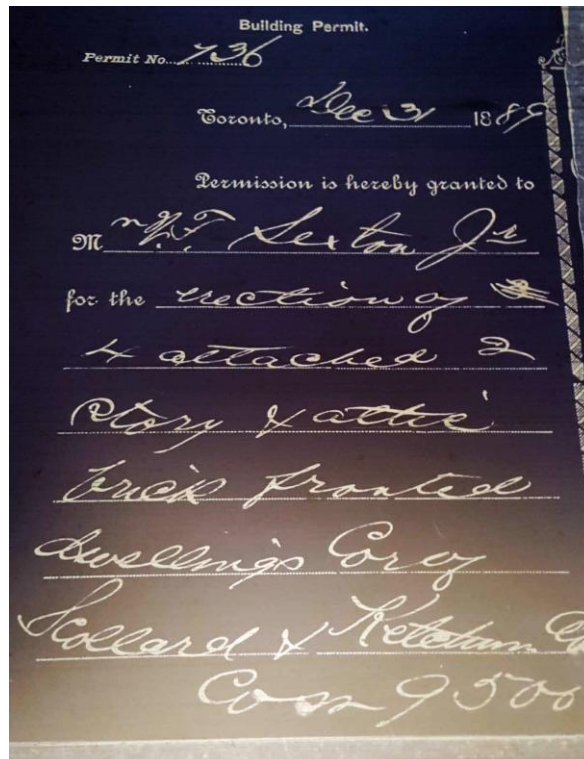 Building Permit.
Permit No. 736
Toronto, Dec 31 1889
Permission is hereby granted to
Mr N.T. Sexton Jr
for the erection of
4 attached 2
story & attic
brick fronted
dwellings Cor of
Scollard & Ketchum
Cost 9500